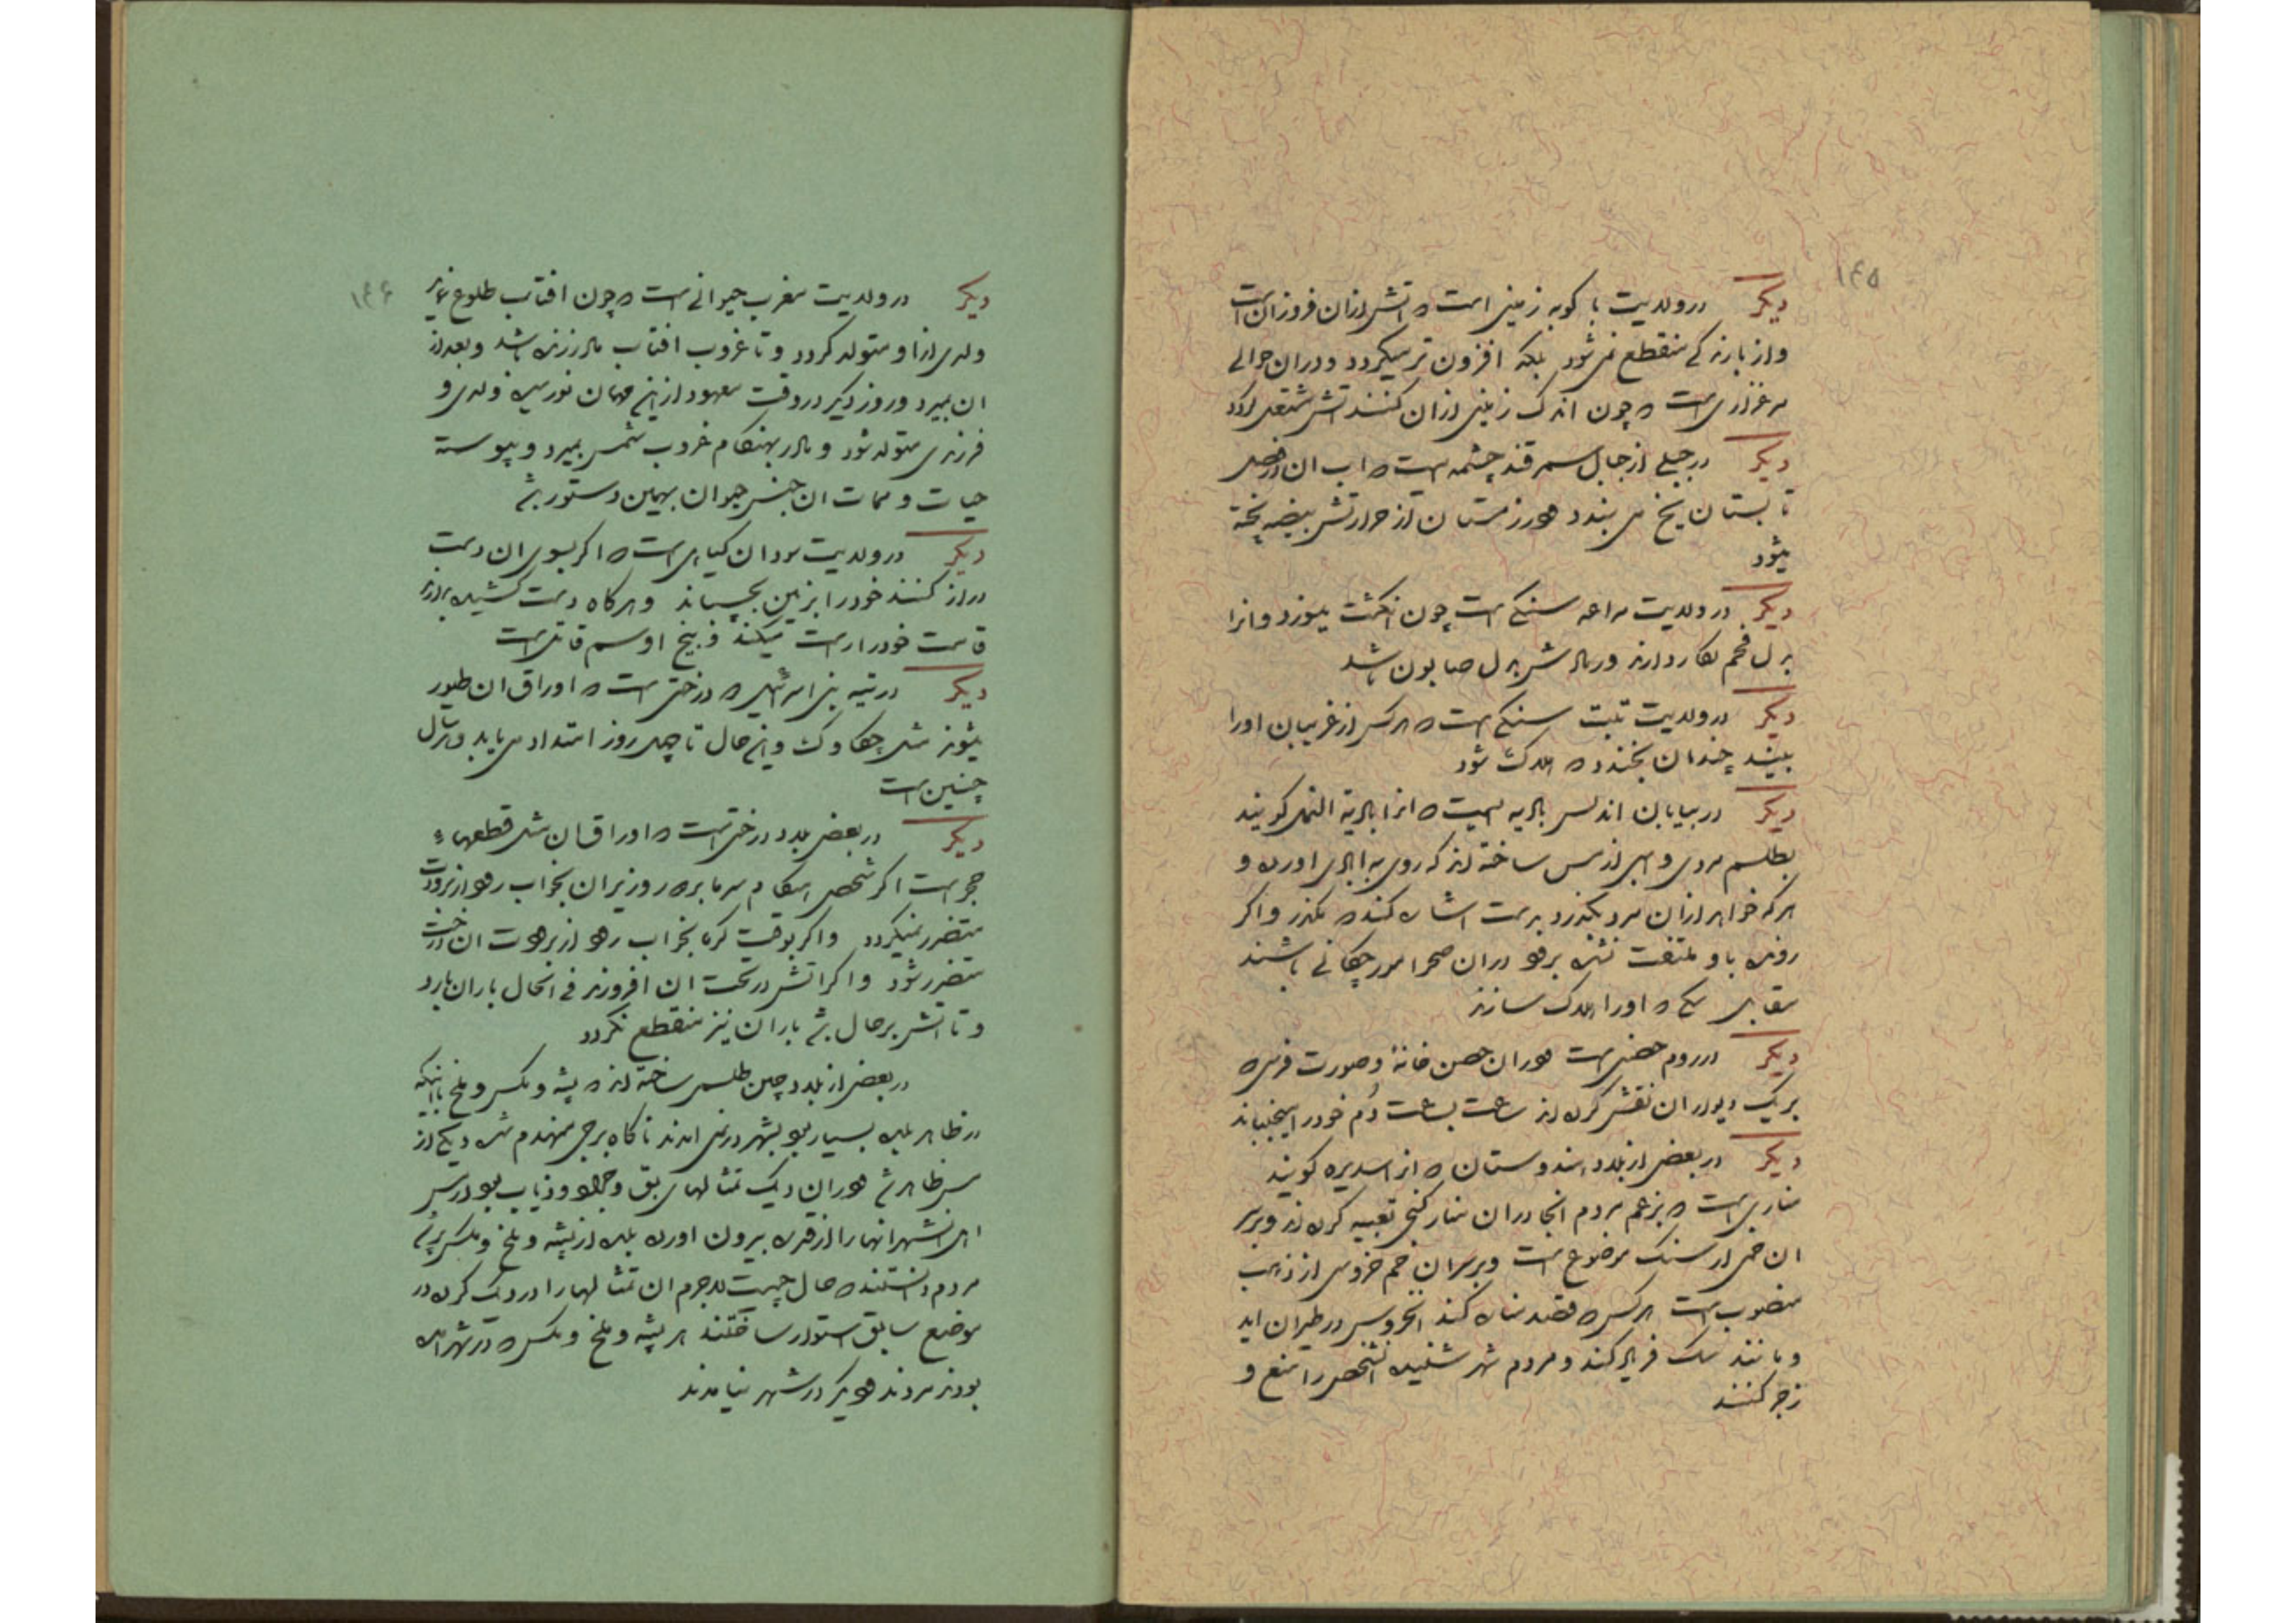 ۱۴۵
دیکر در ولایت باکویه زمینی است که اتش ازان فروزان است
و از بارندکی منقطع نمی‌شود بلکه افزون تر میکردد و دران حوالی
مرغزاری است که چون اندک زمینی ازان کنند اتش مشتعل کردد
دیکر در جبلی از جبال سمرقند چشمه است که اب ان در فصل
تابستان یخ می بندد و در زمستان از حرارتش بیضه پخته
میشود
دیکر در ولایت مراغه سنکی است چون انکشت میسوزد و انرا
بدل فحم بکار دارند و رمادش بدل صابون باشد
دیکر در ولایت تبت سنکی است که هر کس از غریبان او را
بیند چندان بخندد که هلاک شود
دیکر در بیابان اندلس بادیه ایست که انرا بادیة النمل کویند
بطلسم مردی و اسبی از مس ساخته اند که روی به ابادی اورده و
هر که خواهد ازان مرد بکذرد بدست اشاره کند که مکذر و اکر
رونده باو ملتفت نشده برود دران صحرا مورچکانی باشند
مقابل سکی که او را هلاک سازند
دیکر در روم حصنی است و دران حصن خانهٔ و صورت فرسی که
بر یک دیوار ان نقش کرده اند ساعت بساعت دُم خود را میجنباند
دیکر در بعضی از بلاد هندوستان که انرا سدیره کویند
مناری است که بزعم مردم انجا دران منار کنجی تعبیه کرده اند و بر سر
ان خمی از سنک موضوع است و بر سر ان خم خروسی از ذهب
منصوب است هر کس که قصد مناره کند انخروس در طیران اید
و مانند سک فریاد کند و مردم شهر شنیده انشخص را منع و
زجر کنند
۱۴۶
دیکر در ولایت مغرب حیوانی است که چون افتاب طلوع نماید
ولدی ازاو متولد کردد و تا غروب افتاب مادر زنده باشد و بعد از
ان بمیرد و روز دیکر در وقت معهود از این مهمان نورسیده ولدی و
فرزندی متولد شود و مادر بهنکام غروب شمس بمیرد و پیوسته
حیات و ممات ان جنس حیوان بهمین دستور باشد
دیکر در ولایت سودان کیاهی است که اکر بسوی ان دست
دراز کنند خود را بزمین بچسپاند و هر کاه دست کشیده دارند
قامت خود را راست میکند و بیخ او سم قاتل است
دیکر در تیه بنی اسرائیل درختی است که اوراق ان طیور
میشوند مثل چکاوک و این حال تا چهل روز امتداد می یابد و هر سال
چنین است
دیکر در بعضی بلاد درختی است که اوراق ان مثل قطعهاء
حجر است اکر شخصی هنکام سرما برهنه در زیر ان بخواب رود از برودت
متضرر نمیکردد و اکر بوقت کرما بخواب رود از برودت ان درخت
متضرر شود و اکر اتش در تحت ان افروزند فی الحال باران بارد
و تا اتش بر حال باشد باران نیز منقطع نکردد
در بعضی از بلاد چین طلسمی ساخته اند که پشه و مکس و ملخ با اینکه
در ظاهر بلده بسیار بود بشهر در نمی امدند ناکاه برجی منهدم شده دیکی از
مس ظاهر شد و دران دیک تمثالهای بق و جراد و ذباب بود از مس
اهل شهر انها را از قدر بیرون اورده بلده از پشه و ملخ و مکس پر شد
مردم دانستند که حال چیست لاجرم ان تمثالها را در دیک کرده در
موضع سابق استوار ساختند هر پشه و ملخ و مکس که در شهر امده
بودند مردند و دیکر در شهر نیامدند